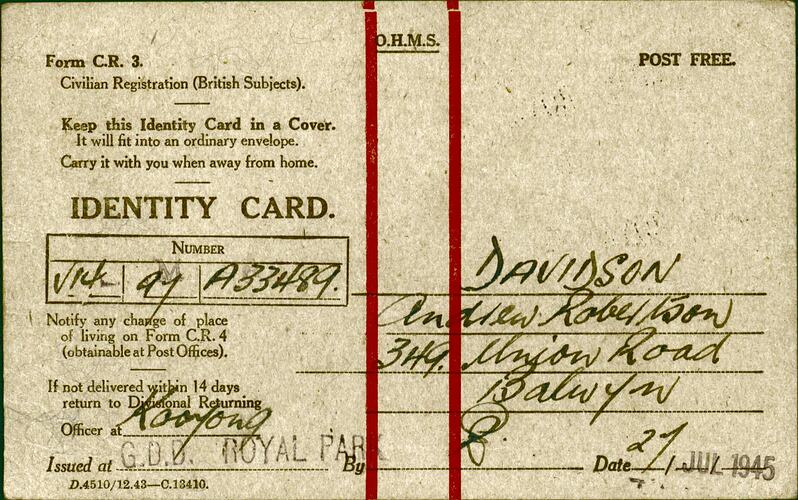 O.H.M.S.
POST FREE.
Form C.R. 3.
Civilian Registration (British Subjects).
Keep this Identity Card in a Cover.
It will fit into an ordinary envelope.
Carry it with you when away from home.
IDENTITY CARD.
NUMBER
V14 A33489.
DAVIDSON
Andrew Robertson
349. Union Road
Balwyn
Notify any change of place
of living on Form C.R. 4
(obtainable at Post Offices).
If not delivered within 14 days
return to Divisional Returning
Officer at Kooyong
Issued at G.D.D. ROYAL PARK By
Date 27/ JUL 1945
D.4510/12.43—C.13410.